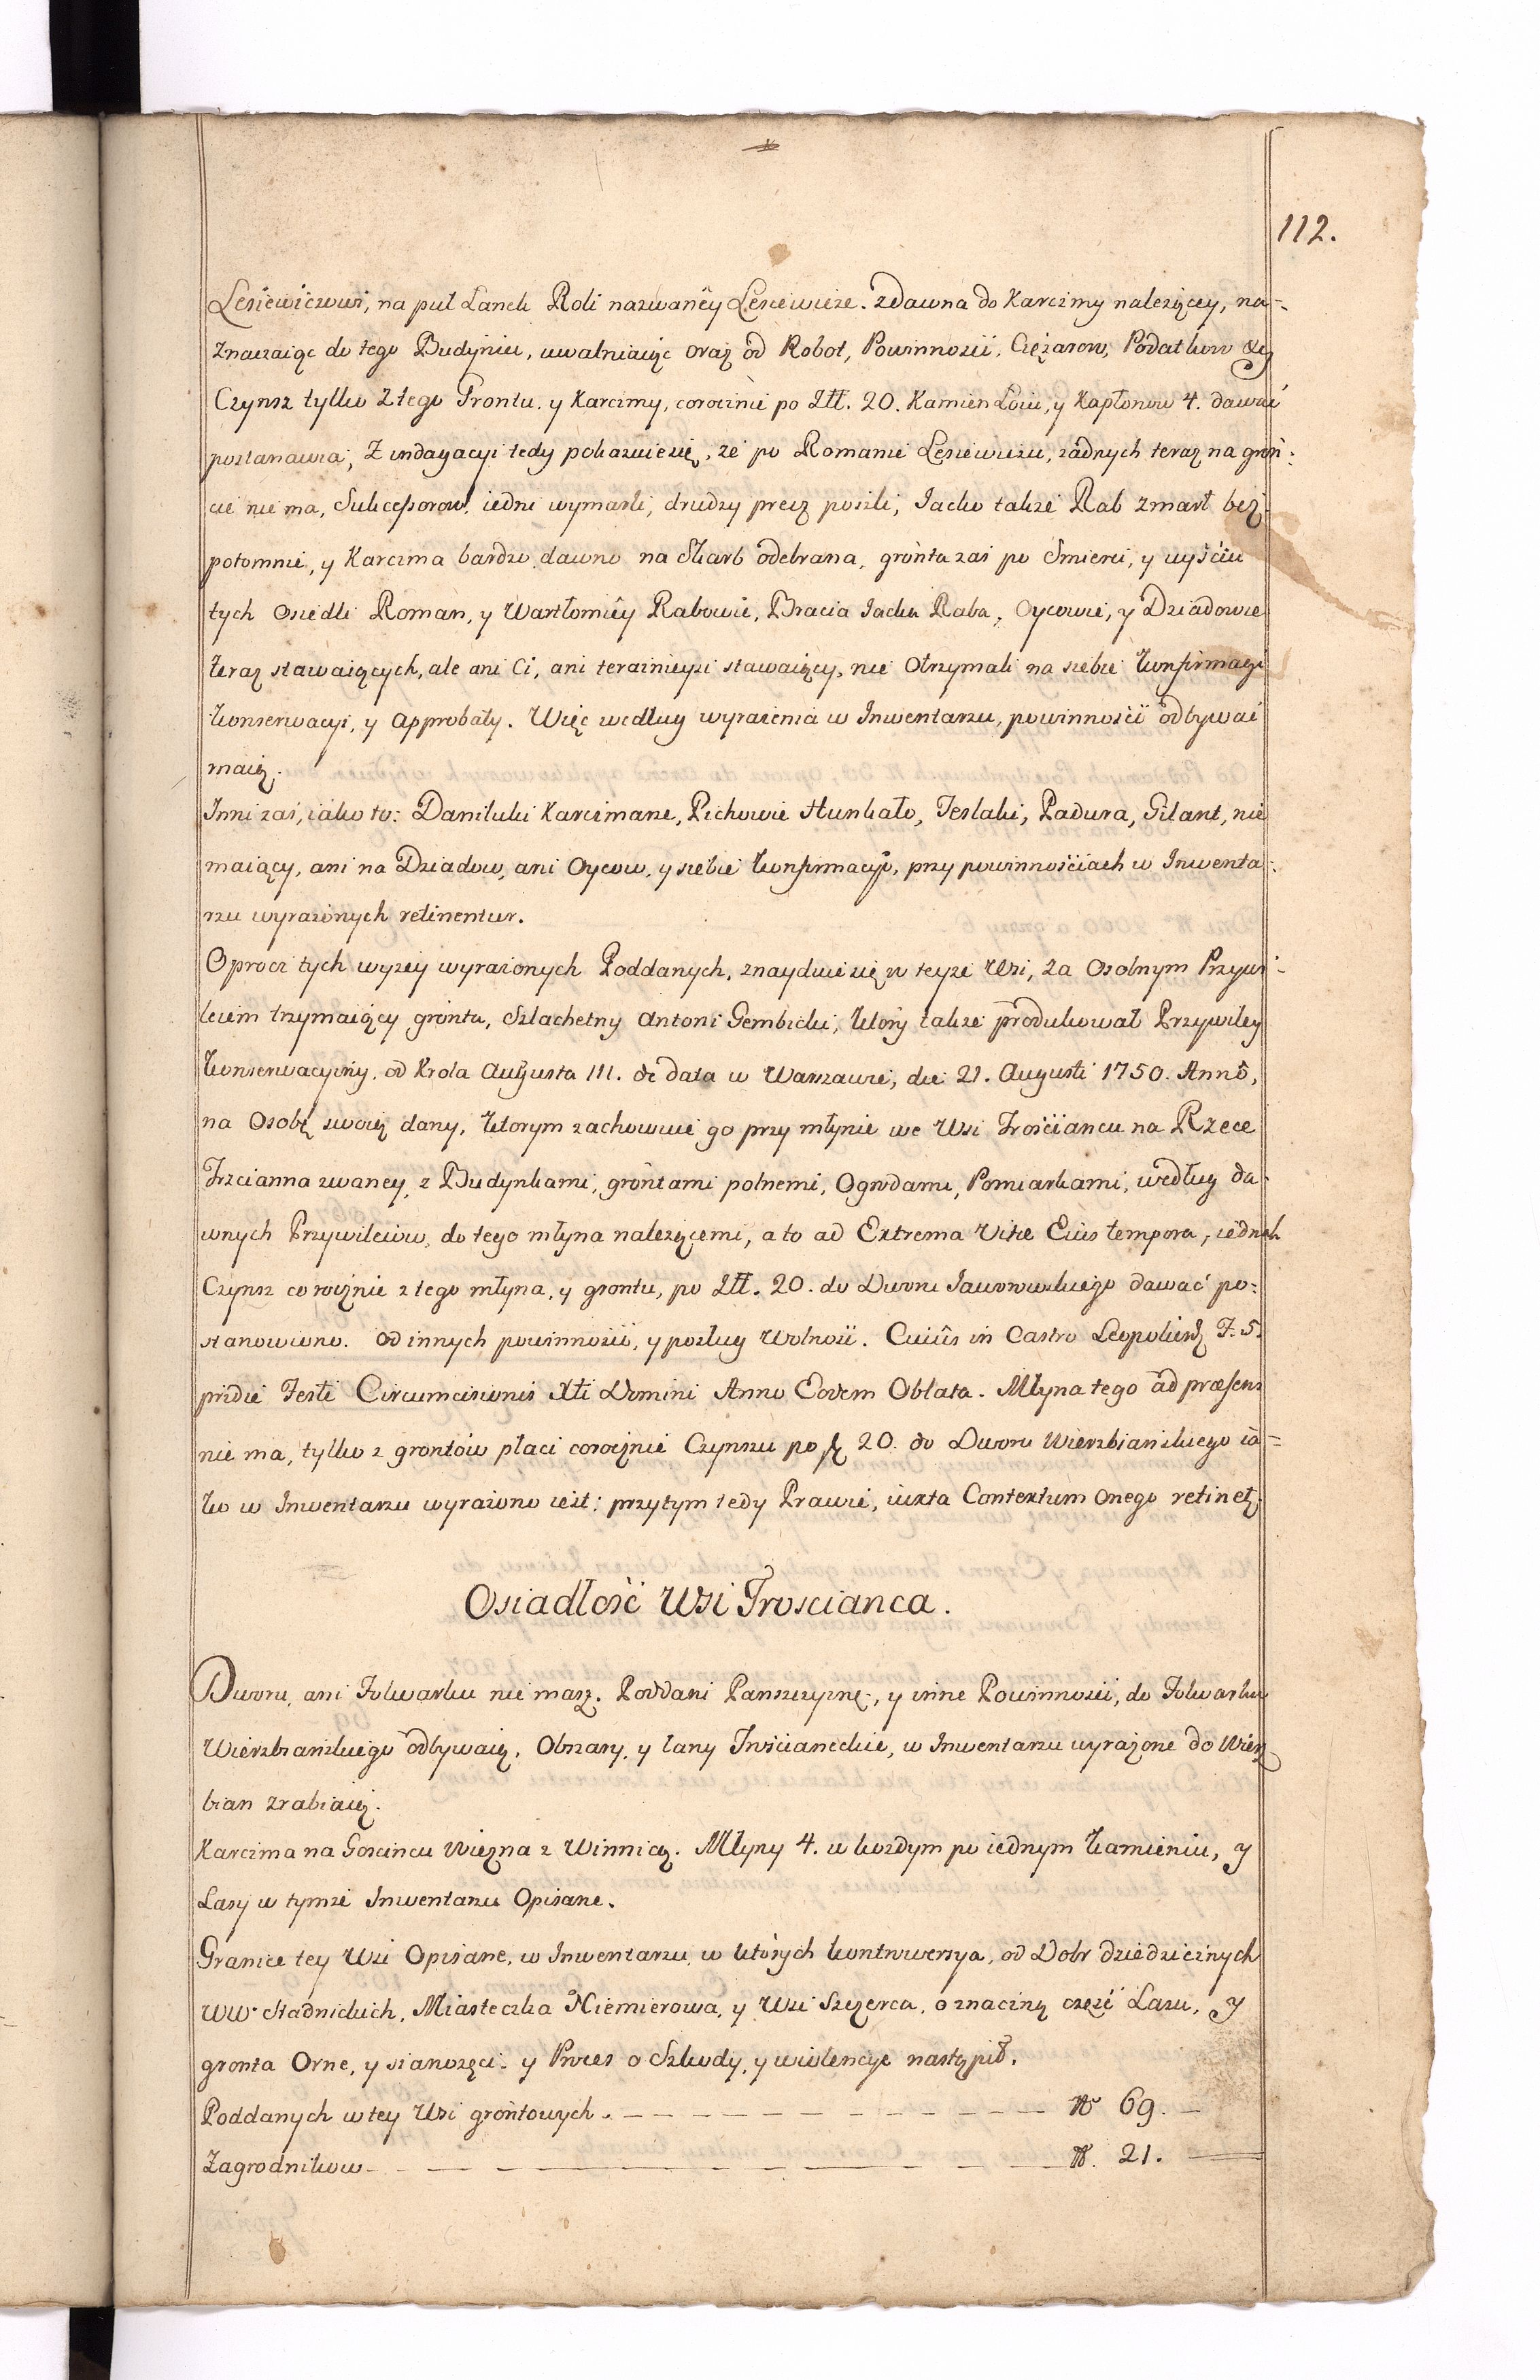 112.
Lesiewiczwi, na puł Lanek Roli nazwaney Lesiewicze. zdawna do Karczmy należący, na=
znaczaiąc do tego Budynku, uwalniaiąc oraz od Robot, Powinnosci, Ciężarow, Podatkow &c
Czynsz tylko z tego Grontu, y Karczmy, corocznie po Złł. 20. Kamien Łoiu, y Kapłonow 4. dawać
postanawia; Z indagacyi tedy pokazuie się, że po Romanie Lesiewiczu, żadnych teraz na gron=
cie nie ma, Sukcessorow, iedni wymarli, drudzy precz poszli, Jacko także Rab zmarł bez
potomnie, y Karczma bardzo dawno na Skarb odebrana, gronta zaś po Smierci, y wyściu
tych Osiedli Roman, y Wartłomiey Rabowie, Bracia Jacka Raba, Oycowie, y Dziadowie
teraz stawaiących, ale ani Ci, ani teraznieysi stawaiący, nie Otrzymali na siebie konfirmacyi
konserwacyi, y Approbaty. Więc według wyrażenia w Inwentarzu, powinności odbywać
maią.
Inni zaś, iako to: Daniluki Karczmarze, Pichowie Hunkało, Jeslaki, Padura, Gilant, nie
maiący, ani na Dziadow, ani Oycow, y siebie konfirmacyi, przy powinnościach w Inwenta=
rzu wyrażonych retinentur.
Oprocz tych wyzey wyrażonych Poddanych, znayduie się w teyże Wsi, za Osobnym Przywi=
leiem trzymaiący gronta, Szlachetny Antoni Gembicki, ktory także produkował Przywiley
konserwacyiny, od Krola Augusta III. de data w Warszawie, die 21. Augusti 1750. Anno,
na Osobę swoię dany, ktorym zachowuie go przy młynie we Wsi Trościancu na Rzece
Trzcianna zwaney, z Budynkami, grontami polnemi, Ogrodami, Pomiarkami, według da=
wnych Przywileiow, do tego młyna należącemi, a to ad Extrema Vitæ Eius tempora, iednak
Czynsz corocznie z tego młyna, y grontu, po Złł. 20. do Dworu Jaworowskiego dawać po=
stanowiono. Od innych powinności, y posług Wolność. Cuius in Castro Leopoliens F. 5.
pridie Festi Circumcisionis Xti Domini Anno Eodem Oblata. Młyna tego ad præsens
nie ma, tylko z grontów płaci corocznie Czynszu po zł 20. do Dworu Wierzbianskiego ia=
ko w Inwentarzu wyrażono iest: przytym tedy Prawie, iuxta Contextum Onego retinet.
Osiadłość Wsi Troscianca.
Dworu, ani Folwarku nie masz. Poddani Panszczyznę, y inne Powinnosci, do Folwarku
Wierzbianskiego odbywaią. Obszary, y łany Trościaneckie, w Inwentarzu wyrażone do Wierz
bian zrabiaią.
Karczma na Goscincu Wiezna z Winnicą. Młyny 4. w kożdym po iednym kamieniu, y
Lasy w tymże Inwentarzu Opisane.
Granice tey Wsi Opisane, w Inwentarzu, w których kontrowersya, od Dobr dziedzicznych
WW. Stadnickich, Miasteczka Niemierowa, y Wsi Szczerca, o znaczną część Lasu, y
gronta Orne, y sianożęci. y Proces o Szkody, y wiolencye nastąpił.
Poddanych w tey Wsi grontowych. — — — No 69. —
Zagrodnikow — — — — No. 21. —